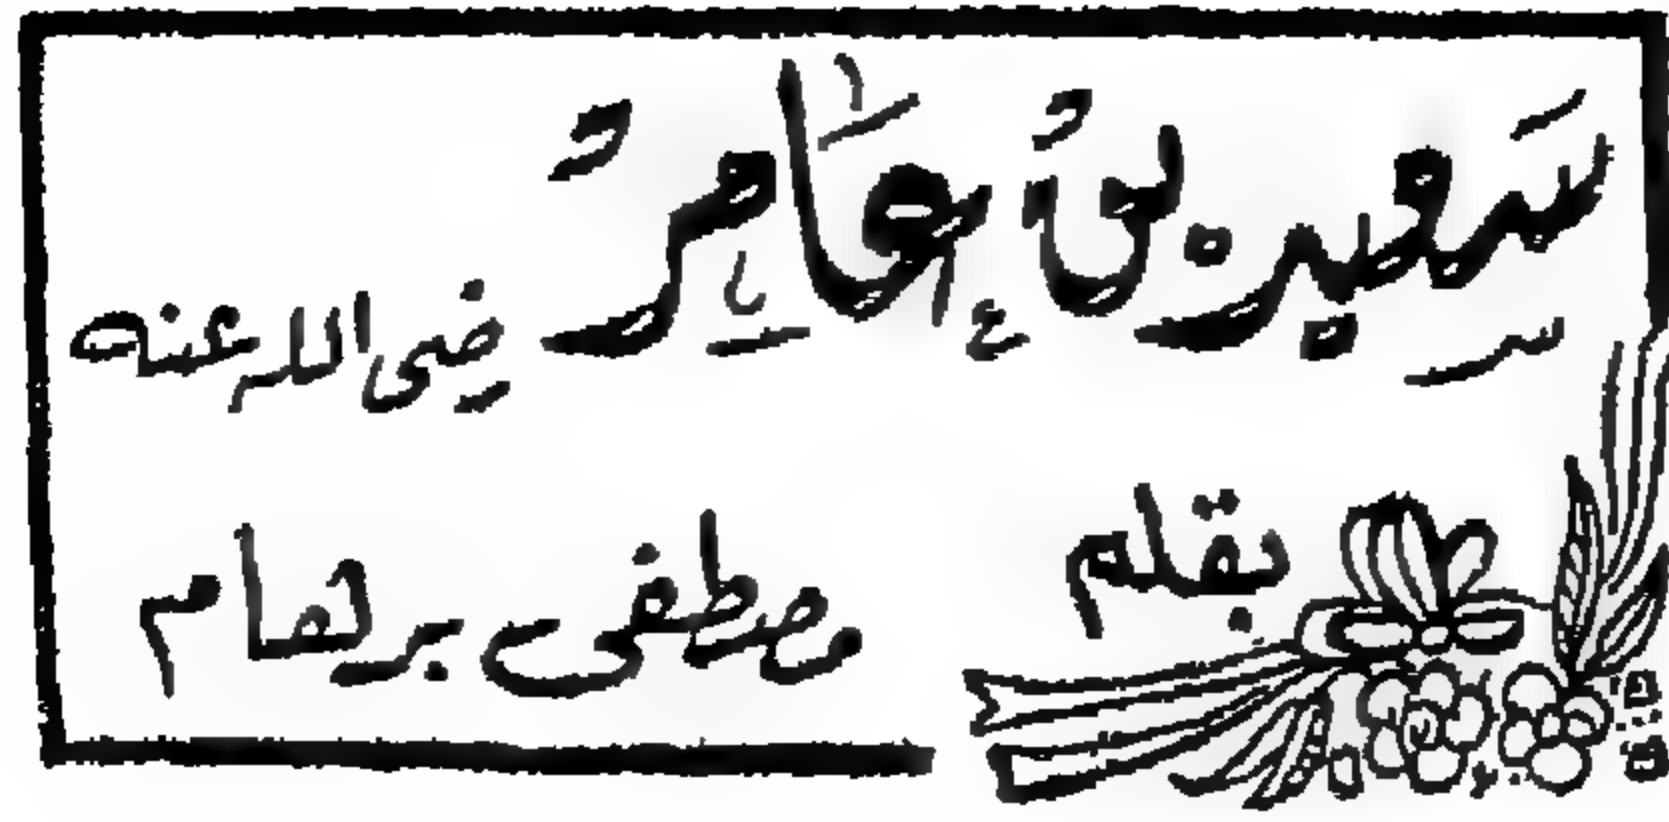 سَعِيد بْنُ عَامِر رضى الله عنه
بقلم
مصطفى برهام